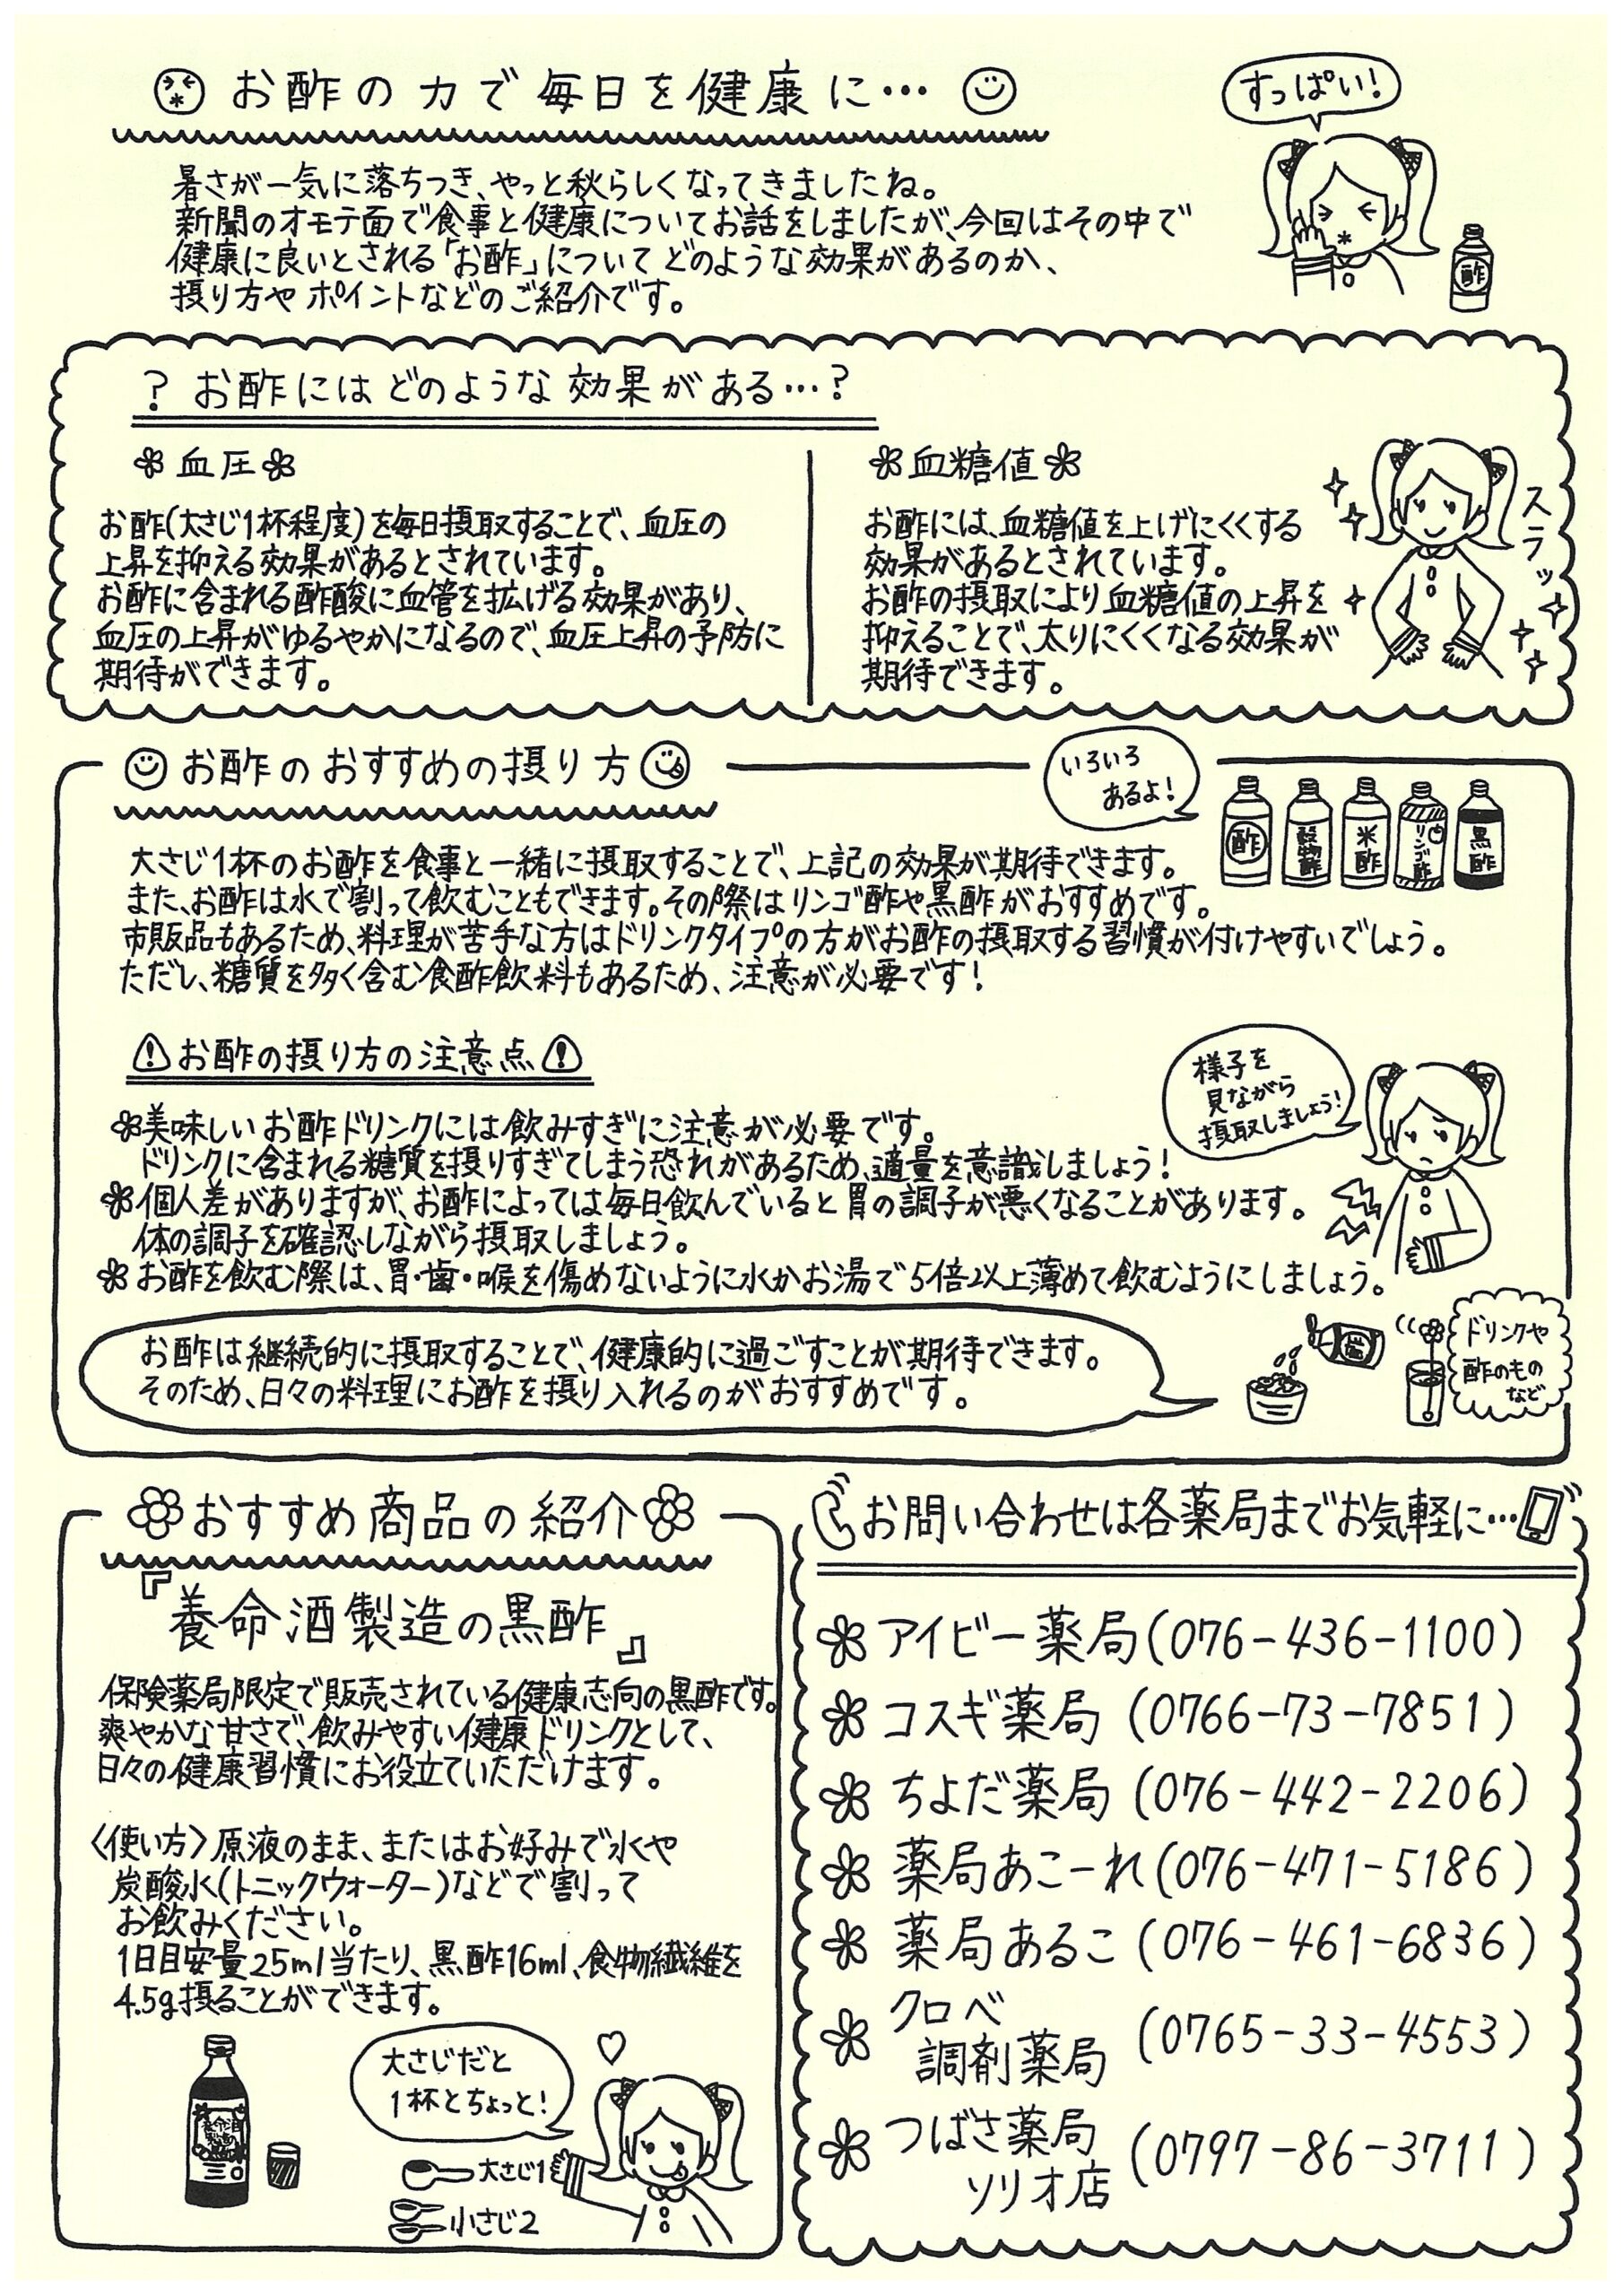 お酢の力で毎日を健康に…
すっぱい!
暑さが一気に落ちつき、やっと秋らしくなってきましたね。
新聞のオモテ面で食事と健康についてお話をしましたが、今回はその中で
健康に良いとされる「お酢」についてどのような効果があるのか、
摂り方やポイントなどのご紹介です。
酢
? お酢にはどのような効果がある…?
血圧
お酢(大さじ1杯程度)を毎日摂取することで、血圧の
上昇を抑える効果があるとされています。
お酢に含まれる酢酸に血管を拡げる効果があり、
血圧の上昇がゆるやかになるので、血圧上昇の予防に
期待ができます。
血糖値
お酢には、血糖値を上げにくくする
効果があるとされています。
お酢の摂取により血糖値の上昇を
抑えることで、太りにくくなる効果が
期待できます。
スラッ
お酢のおすすめの摂り方
いろいろ
あるよ!
酢
穀物酢
米酢
リンゴ酢
黒酢
大さじ1杯のお酢を食事と一緒に摂取することで、上記の効果が期待できます。
また、お酢は水で割って飲むこともできます。その際はリンゴ酢や黒酢がおすすめです。
市販品もあるため、料理が苦手な方はドリンクタイプの方がお酢の摂取する習慣が付けやすいでしょう。
ただし、糖質を多く含む食酢飲料もあるため、注意が必要です!
お酢の摂り方の注意点
様子を
見ながら
摂取しましょう!
美味しいお酢ドリンクには飲みすぎに注意が必要です。
ドリンクに含まれる糖質を摂りすぎてしまう恐れがあるため、適量を意識しましょう!
個人差がありますが、お酢によっては毎日飲んでいると胃の調子が悪くなることがあります。
体の調子を確認しながら摂取しましょう。
お酢を飲む際は、胃・歯・喉を傷めないように水かお湯で5倍以上薄めて飲むようにしましょう。
お酢は継続的に摂取することで、健康的に過ごすことが期待できます。
そのため、日々の料理にお酢を摂り入れるのがおすすめです。
ドリンクや
酢のもの
など
おすすめ商品の紹介
『養命酒製造の黒酢』
保険薬局限定で販売されている健康志向の黒酢です。
爽やかな甘さで、飲みやすい健康ドリンクとして、
日々の健康習慣にお役立ていただけます。
〈使い方〉原液のまま、またはお好みで水や
炭酸水(トニックウォーター)などで割って
お飲みください。
1日目安量25ml当たり、黒酢16ml、食物繊維を
4.5g摂ることができます。
大さじだと
1杯とちょっと!
大さじ1
小さじ2
お問い合わせは各薬局までお気軽に…
アイビー薬局(076-436-1100)
コスギ薬局(0766-73-7851)
ちよだ薬局(076-442-2206)
薬局あこーれ(076-471-5186)
薬局あるこ(076-461-6836)
クロベ
調剤薬局
(0765-33-4553)
つばさ薬局
ソリオ店
(0797-86-3711)